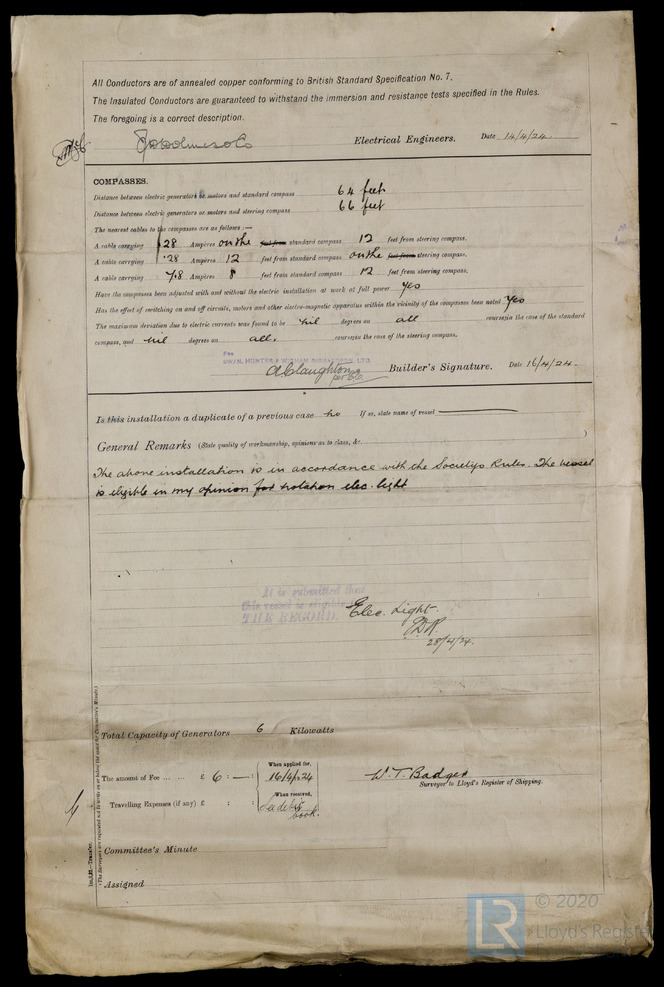 All Conductors are of annealed copper conforming to British Standard Specification No. 7.
The Insulated Conductors are guaranteed to withstand the immersion and resistance tests specified in the Rules.
The foregoing is a correct description.
Electrical Engineers. Date 14/4/24.
COMPASSES.
Distance between electric generators or motors and standard compass 64 feet
Distance between electric generators or motors and steering compass 66 feet
The nearest cables to the compasses are as follows :—
A cable carrying .28 Ampères on the feet from standard compass 12 feet from steering compass.
A cable carrying .28 Ampères 12 feet from standard compass on the feet from steering compass.
A cable carrying 7.8 Ampères 8 feet from standard compass 12 feet from steering compass.
Have the compasses been adjusted with and without the electric installation at work at full power yes
Has the effect of switching on and off circuits, motors and other electro-magnetic apparatus within the vicinity of the compasses been noted yes
The maximum deviation due to electric currents was found to be nil degrees on all course in the case of the standard
compass, and nil degrees on all. course in the case of the steering compass.
For
SWAN, HUNTER & WIGHAM RICHARDSON, LTD.
Builder's Signature. Date 16/4/24.
Is this installation a duplicate of a previous case no If so, state name of vessel
General Remarks (State quality of workmanship, opinions as to class, &c. )
The above installation is in accordance with the Society's Rules. The vessel
is eligible in my opinion for notation elec. light
It is submitted that
this vessel is eligible
THE RECORD. Elec. Light.
28/4/24.
Total Capacity of Generators 6 Kilowatts
The amount of Fee ... ... £ 6 : — : When applied for, 16/4/24
When received,
Travelling Expenses (if any) £ : :
book.
W. T. Badger
Surveyor to Lloyd's Register of Shipping.
Committee's Minute
Assigned
© 2020
LR Lloyd's Register